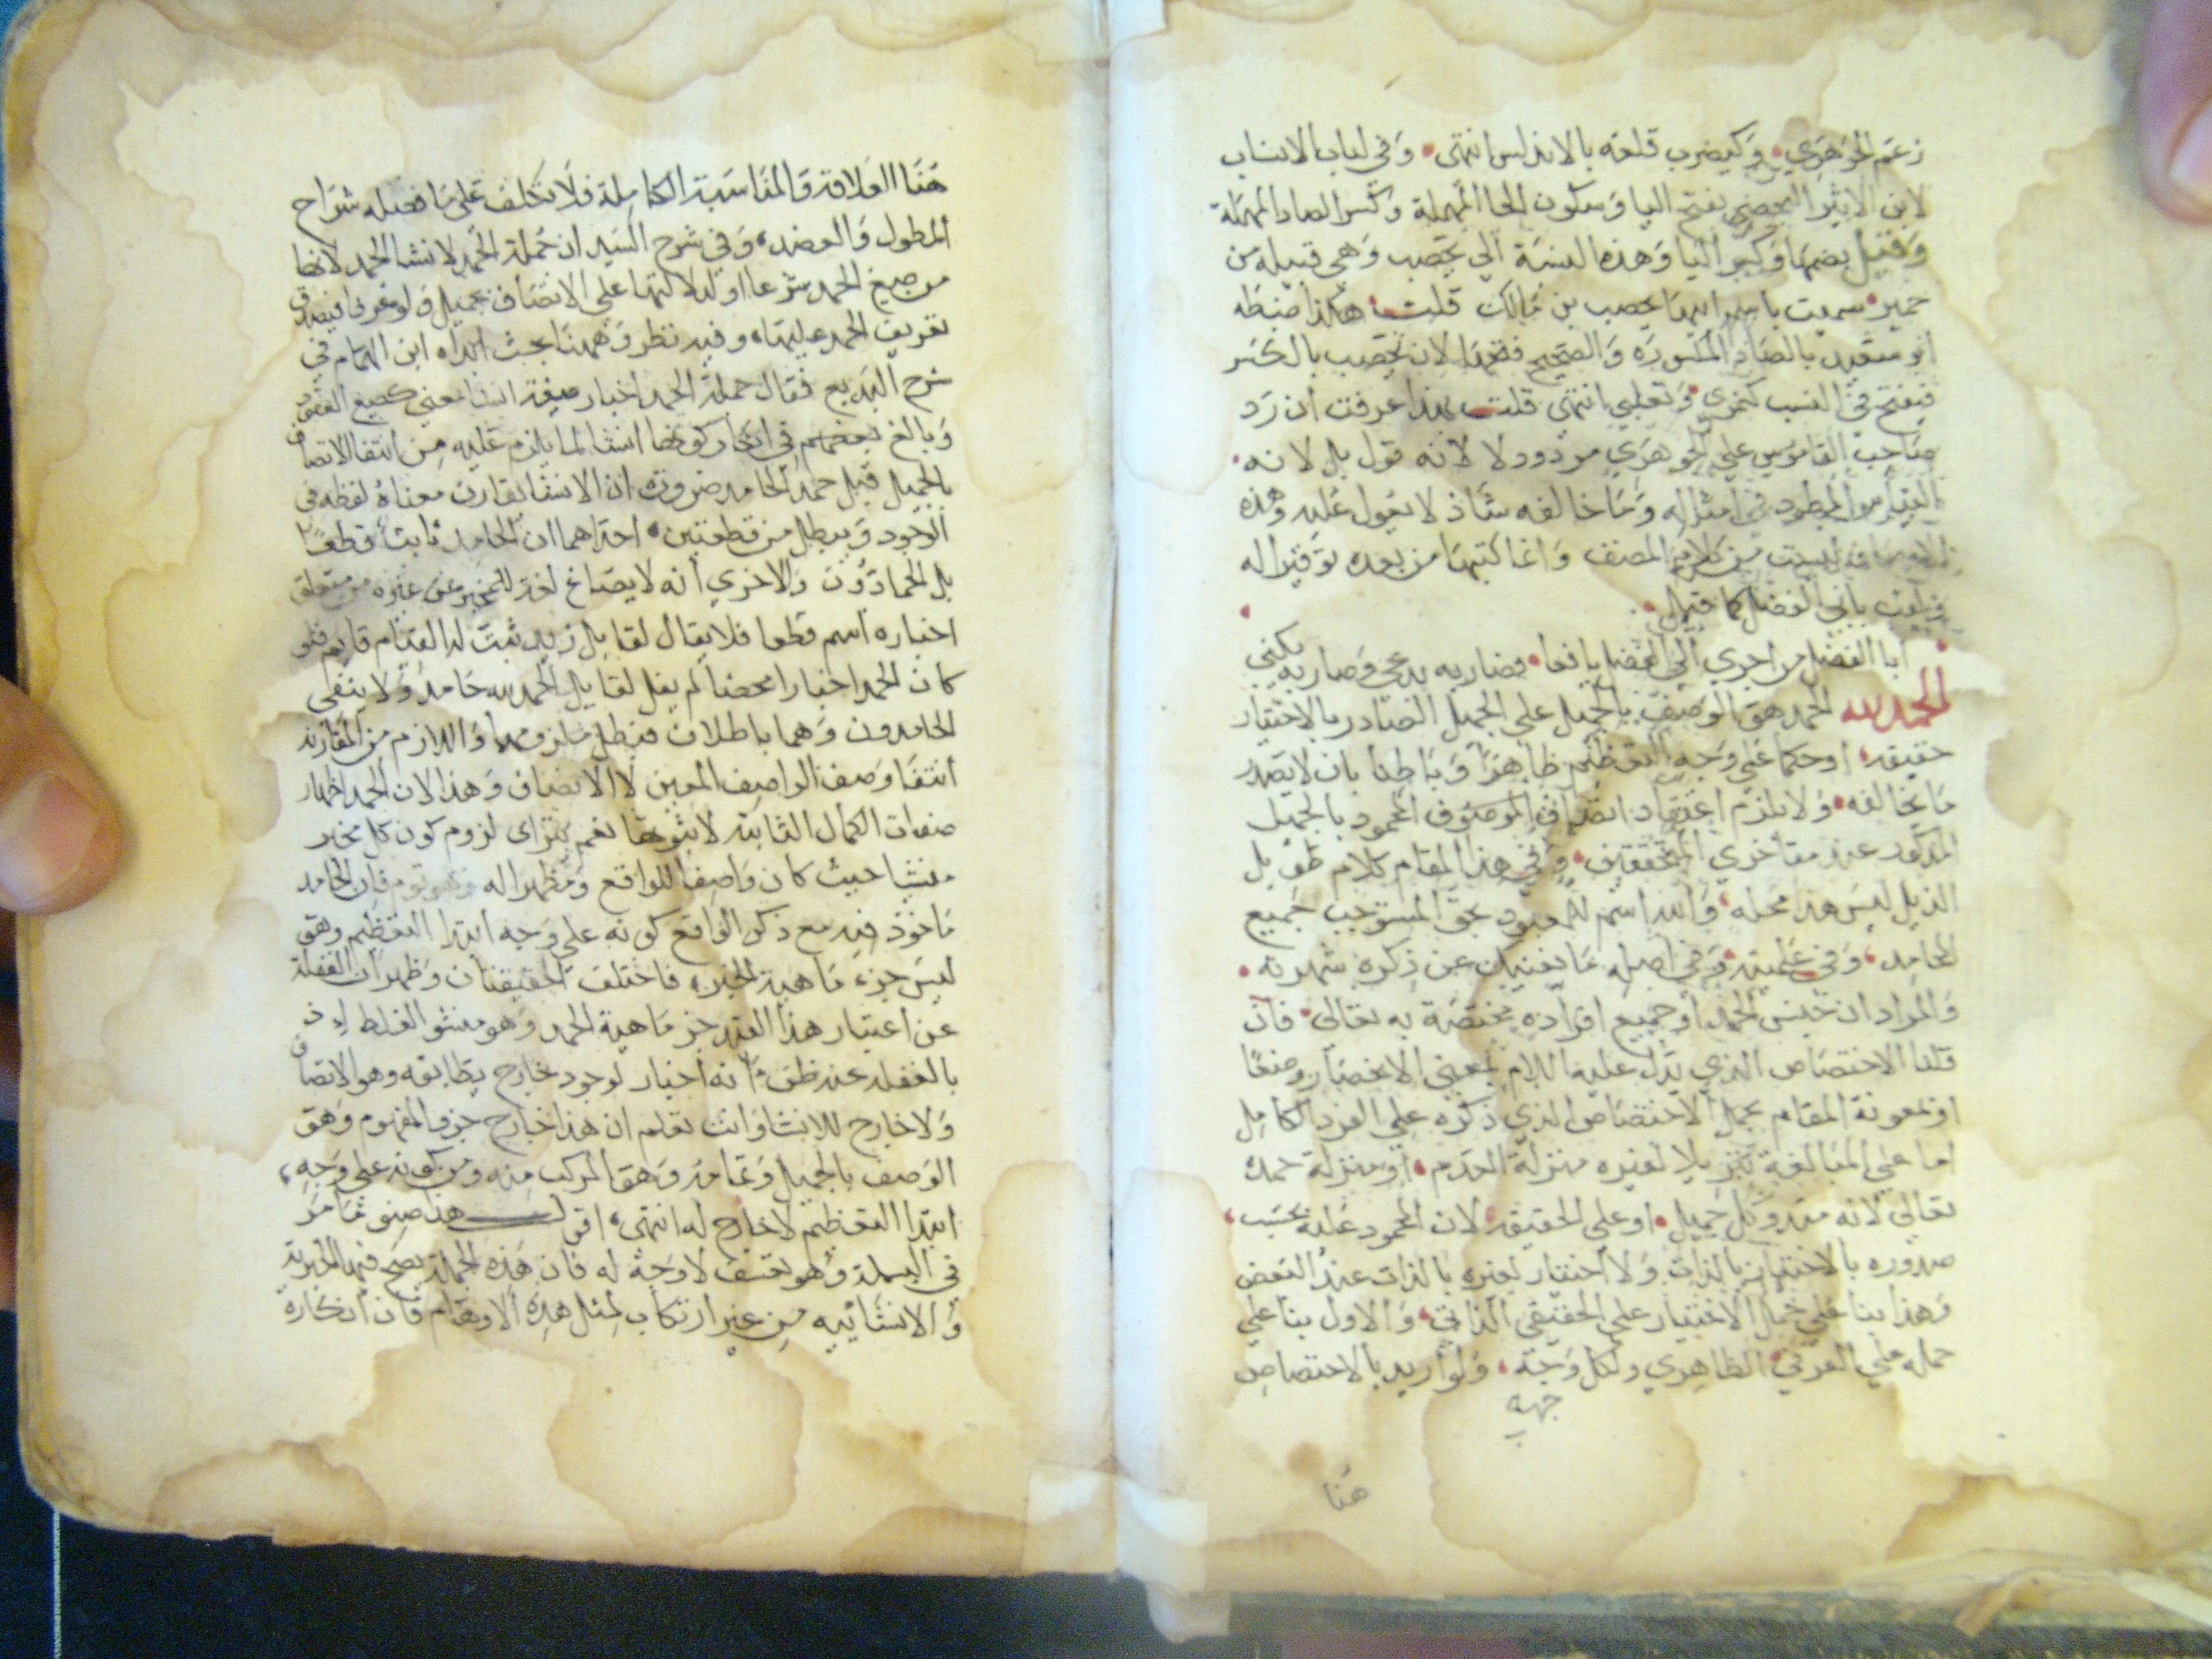 زعم الجوهري وكيضرب قلعة بالاندلس انتهى وفي لباب الانساب
لابن الاثير اليحصبي بفتح اليا وسكون الحا المهملة وكسر الصاد المهملة
وقيل بضمها وكسر اليا وهذه النسبة الي يحصب وهي قبيلة من
حمير سميت باسم ابيها يحصب بن مالك قلت هكذا ضبطه
ابو سعيد بالصاد المكسورة والصحيح فتحها لان يحصب بالكسر
فيفتح في النسب كنمري وتغلبي انتهي قلت بهذا عرفت أن رد
صاحب القاموس علي الجوهري مردود لا لانه قول بل لانه
القياس المطرد في أمثاله وما خالفه شاذ لا يعول عليه وهذه
ليست من كلام المصنف وانما كتبها من بعده توقيرا له
بابي الفضل كما قيل
ابا الفضل من اجري الي الفضل يافعا فصار به يدعي وصار به يكني
الحمد لله الحمد هو الوصف بالجميل علي الجميل الصادر بالاختيار
حقيقة او حكما علي وجه التعظيم ظاهرا وباطنا بان لا يصدر
ما يخالفه ولا يلزم اعتقاد اتصاف الموصوف المحمود بالجميل
المذكور عند متأخري المحققين وفي هذا المقام كلام طويل
الذيل ليس هذا محله والله اسم للمعبود بحق المستوجب جميع
المحامد وفي علميته وفي اصله ما يغنيك عن ذكره شهرته
والمراد ان جنس الحمد أو جميع افراده مختصة به تعالي فان
قلنا الاختصاص الذي يدل عليه اللام بمعني الانحصار وضعا
او بمعونة المقام يحمل الاختصاص الذي ذكره علي الفرد الكامل
اما علي المبالغة تنزيلا لغيره منزلة العدم او منزلة حمده
تعالي لانه مبدو كل جميل او علي الحقيقة لان المحمود عليه يحسب
صدوره بالاختيار بالذات ولا اختيار لغيره بالذات عند البعض
وهذا بنا علي حمل الاختيار علي الحقيقي الذاتي والاول بنا علي
حمله علي العرفي الظاهري ولكل وجهة ولو اريد بالاختصاص
جهة
هنا
هنا العلاقة والمناسبة الكاملة فلا تكلف علي ما فعله شراح
المطول والعضد وفي شرح السيد ان جملة الحمد لانشا الحمد لانها
من صيغ الحمد شرعا او لدلالتها علي الاتصاف بجميل ولو عرفا فيصدق
تعريف الحمد عليها وفيه نظر وههنا بحث ابداه ابن الهمام في
شرح البديع فقال جملة الحمد اخبار صيغة انشا معني كصيغ العقود
وبالغ بعضهم في انكار كونها انشا لما يلزم عليه من انتفا الاتصاف
بالجميل قبل حمد الحامد ضرورة ان الانشا يقارن معناه لفظه في
الوجود ويبطل من قطعتين احداهما ان الحامد ثابت قطعا
بل الحمادون والاخري أنه لا يصاغ لغة للمخبر عن غيره من متعلق
اخباره اسم قطعا فلا يقال لقايل زيد ثبت له القيام قايم فلو
كان الحمد اخبارا محضا لم يقل لقايل الحمد لله حامد ولا ينتفي
الحامدون وهما باطلان فبطل ملزومهما واللازم من المقارنة
انتفا وصف الواصف المعين لا الاتصاف وهذا لان الحمد اظهار
صفات الكمال الثابتة لا ثبوتها نعم يتراى لزوم كون كل مخبر
منشيا حيث كان واصفا للواقع ومظهرا له وهو توهم فان الحامد
ماخوذ فيه مع ذكر الواقع كونه علي وجه ابتدا التعظيم وهو
ليس جزء ماهية الخبر فاختلف الحقيقتان وظهر ان الغفلة
عن اعتبار هذا القيد جز ماهية الحمد وهو منشو الغلط إذ
بالغفلة عنه ظن أنه اخبار لوجود خارج يطابقه وهو الاتصاف
ولا خارج للانشا وانت تعلم ان هذا خارج جزو المفهوم وهو
الوصف بالجميل وتمامه وهو المركب منه ومن كونه علي وجه
ابتدا التعظيم لا خارج له انتهى اقول هذا صنو ما مر
في البسملة وهو تعسف لا وجه له فان هذه الجملة يصح فيها الخبرية
والانشائيه من غير ارتكاب لمثل هذه الاوهام فان انكاره